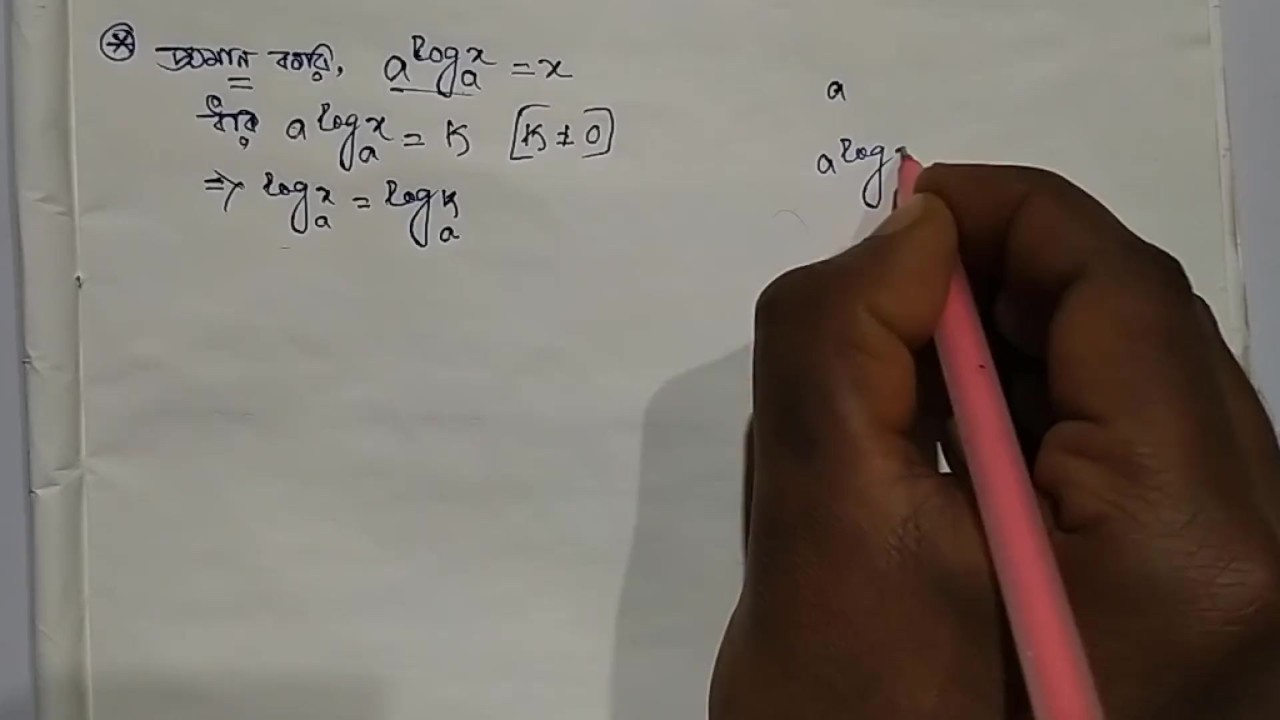 * প্রমান করি, a^log_a x = x
ধরি a^log_a x = K [K ≠ 0]
⇒ log_a x = log_a K
a
a^log